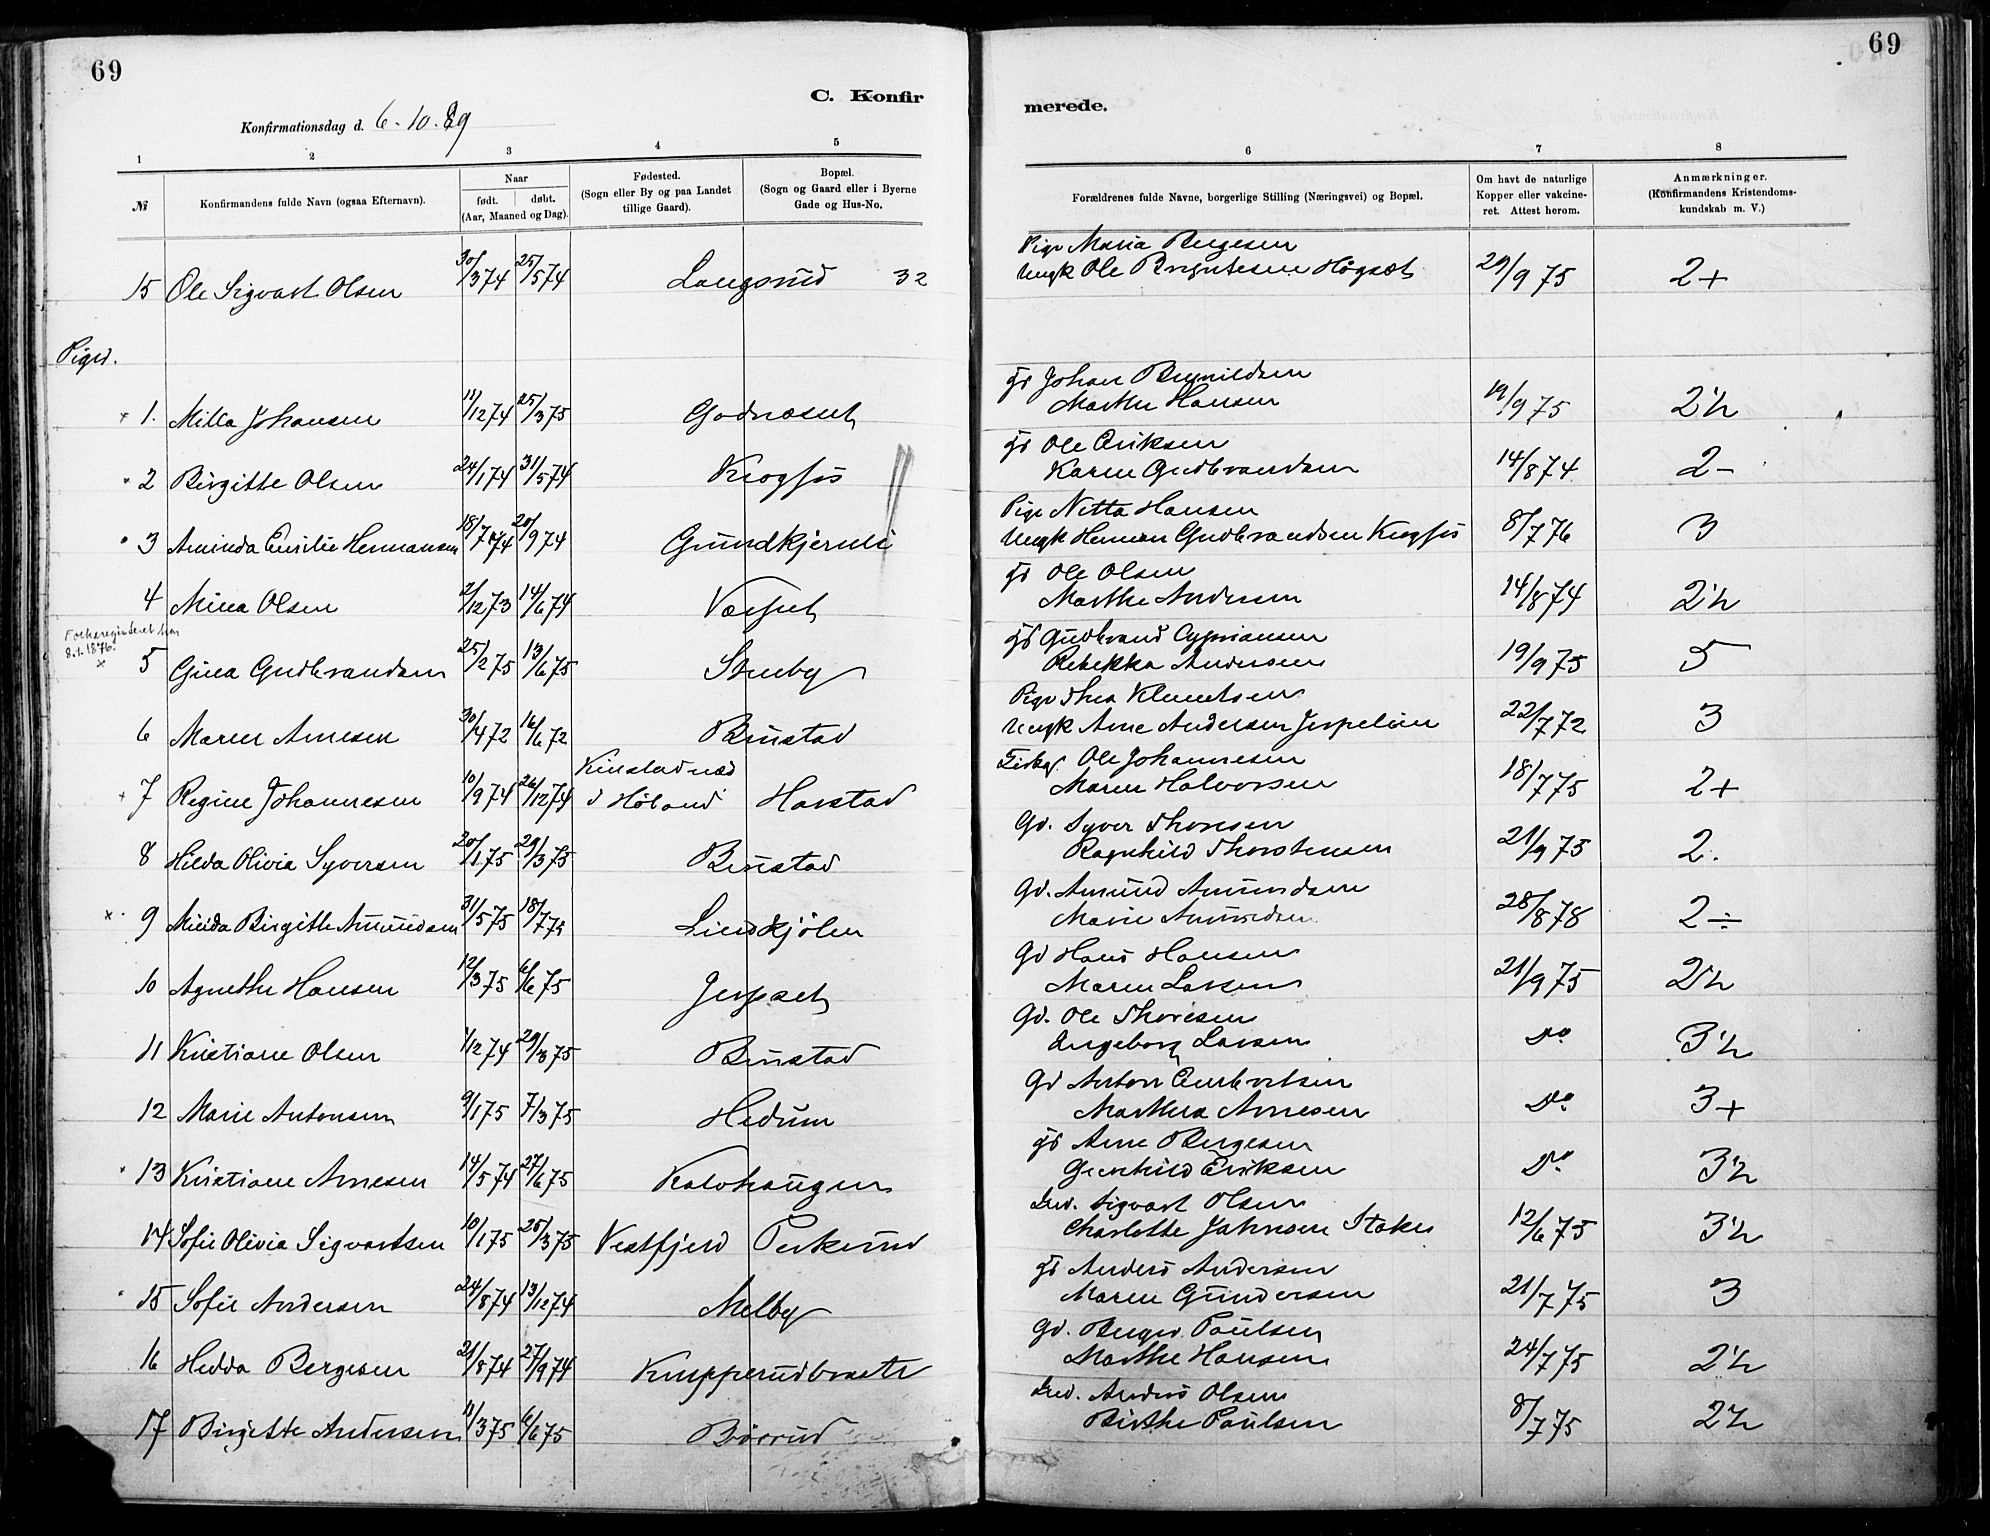 69
69
C. Konfir
merede.
Konfirmationsdag d. 6-10-89
1 2 3 4 5
6 7 8
№ Konfirmandens fulde Navn (ogsaa Efternavn). Naar født. døbt. (Aar, Maaned og Dag). Fødested. (Sogn eller By og paa Landet tillige Gaard). Bopæl. (Sogn og Gaard eller i Byerne Gade og Hus-No.
Forældrenes fulde Navne, borgerlige Stilling (Næringsvei) og Bopæl. Om havt de naturlige Kopper eller vakcineret. Attest herom. Anmærkninger. (Konfirmandens Kristendomskundskab m. V.)
Pige Maria Bergesen
15 Ole Sigvart Olsen 30/3 74 25/5 74 Langsrud 32 Ungk Ole Høgset 29/9 75 2+
Piger.
Gd Johan
1. Milla Johansen 11/12 74 25/3 75 Godnæset Marthe Hansen 19/9 75 2½
Gd Ole Eriksen
2 Birgitte Olsen 24/1 74 31/5 74 Krogfos Karen Gudbrandsen 14/8 74 2-
Pige Netta Hansen
3 Aminda Emilie Hermansen 18/7 74 20/9 74 Ungk Herman Gudbrandsen Krogfos 8/7 76 3
Gd Ole Olsen
4 Mina Olsen 2/12 73 14/6 74 Marthe Andersen 14/8 74 2½
Folkeregisteret har
8.1.1876.
x
Gd Gudbrand Cypriansen
5 Gina Gudbrandsen 25/2 75 13/6 75 Stenby Rebekka Andersen 19/9 75 5
Pige Thea Klemetsen
6 Maren Arnesen 30/4 72 16/6 72 Bunstad Ungk Arne Andersen 22/7 72 3
Kinstadnæs Ole Johannesen
7 Regine Johannesen 10/9 74 26/12 74 i Høland Harstad Maren Halvorsen 18/7 75 2+
Gd. Syver Thoresen
8 Hilda Olivia Syversen 20/1 75 29/3 75 Bunstad Ragnhild Thorstensen 21/9 75 2.
Gd. Amund Amundsen
x 9 Minda Birgitte Amundsen 31/5 75 18/7 75 Lindkjølen Marie Amundsen 28/8 78 2÷
Gd Hans Hansen
10 Agnethe Hansen 12/3 75 6/6 75 Jerpset Maren Larsen 21/9 75 2½
Gd. Ole Thoresen
11 Kristiane Olsen 1/12 74 29/3 75 Bunstad Ingeborg Larsen Do 3½
Gd Anton Embretsen
12 Marie Antonsen 9/1 75 7/3 75 Hedum Marthea Arnesen Do 3+
Gd Arne Bergesen
13 Kristiane Arnesen 14/5 74 27/6 75 Kalvhaugen Gunhild Eriksen Do 3½
Ind. Sigvart Olsen
14 Sofie Olivia Sigvartsen 10/1 75 26/3 75 Vestfjerd Perkerud Charlotte Johnsen Staker 12/6 75 3½
Gd Anders Andersen
15 Sofie Andersen 24/8 74 13/12 74 Melby Maren Gundersen 21/7 75 3
Gd. Berger Paulsen
16 Hedda Bergesen 21/8 74 27/9 74 Knapperudbraate Marthe Hansen 24/7 75 2½
Ind. Anders Olsen
17 Birgitte Andersen 11/3 75 6/6 75 Børrud Birthe Paulsen 8/7 75 2½